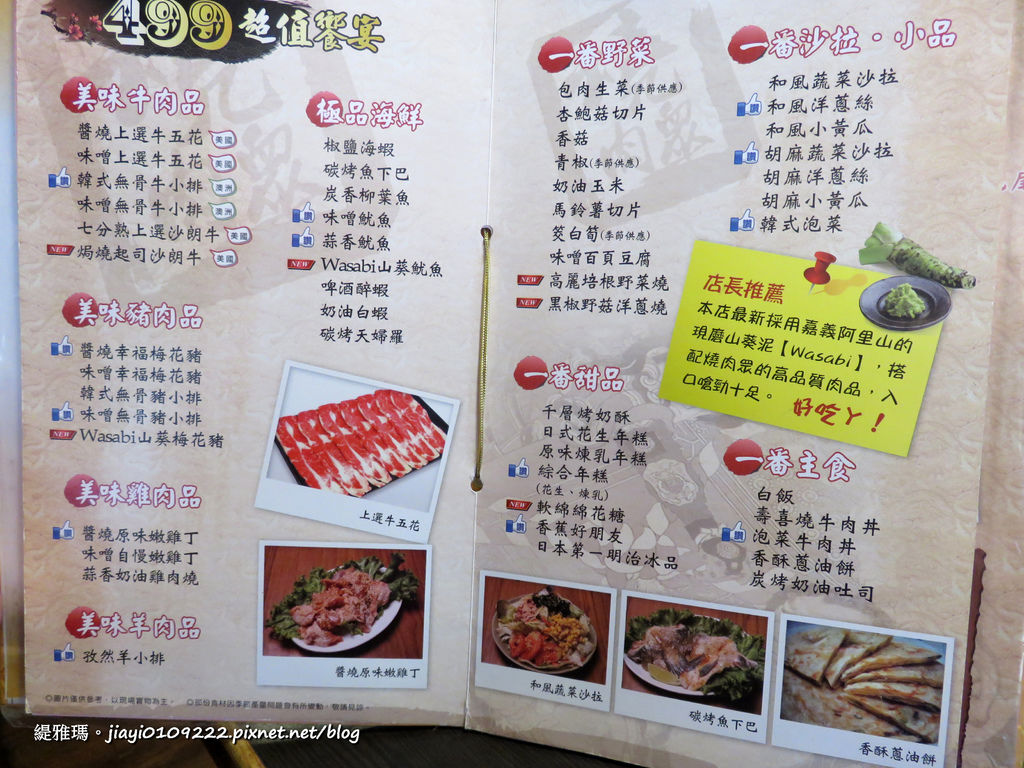 499超值饗宴
美味牛肉品
醬燒上選牛五花 美國
味噌上選牛五花 美國
讚 韓式無骨牛小排 澳洲
味噌無骨牛小排 澳洲
七分熟上選沙朗牛 美國
NEW 焗燒起司沙朗牛 美國
美味豬肉品
讚 醬燒幸福梅花豬
味噌幸福梅花豬
韓式無骨豬小排
讚 味噌無骨豬小排
NEW Wasabi山葵梅花豬
美味雞肉品
讚 醬燒原味嫩雞丁
味噌自慢嫩雞丁
蒜香奶油雞肉燒
美味羊肉品
讚 孜然羊小排
極品海鮮
椒鹽海蝦
碳烤魚下巴
炭香柳葉魚
讚 味噌魷魚
讚 蒜香魷魚
NEW Wasabi山葵魷魚
啤酒醉蝦
奶油白蝦
碳烤天婦羅
上選牛五花
醬燒原味嫩雞丁
◎圖片僅供參考，以現場實物為主。 ◎部份食材因季節產量問題會有所變動，敬請見諒。
一番野菜
包肉生菜(季節供應)
杏鮑菇切片
香菇
青椒(季節供應)
奶油玉米
馬鈴薯切片
筊白筍(季節供應)
味噌百頁豆腐
NEW 高麗培根野菜燒
NEW 黑椒野菇洋蔥燒
一番甜品
千層烤奶酥
日式花生年糕
原味煉乳年糕
讚 綜合年糕
(花生、煉乳)
NEW 軟綿綿花糖
讚 香蕉好朋友
日本第一明治冰品
一番沙拉・小品
和風蔬菜沙拉
讚 和風洋蔥絲
和風小黃瓜
讚 胡麻蔬菜沙拉
胡麻洋蔥絲
胡麻小黃瓜
讚 韓式泡菜
店長推薦
本店最新採用嘉義阿里山的
現磨山葵泥【Wasabi】，搭
配燒肉眾的高品質肉品，入
口嗆勁十足。
一番主食
白飯
壽喜燒牛肉丼
讚 泡菜牛肉丼
香酥蔥油餅
炭烤奶油吐司
和風蔬菜沙拉
碳烤魚下巴
香酥蔥油餅
緹雅瑪。jiayi0109222.pixnet.net/blog